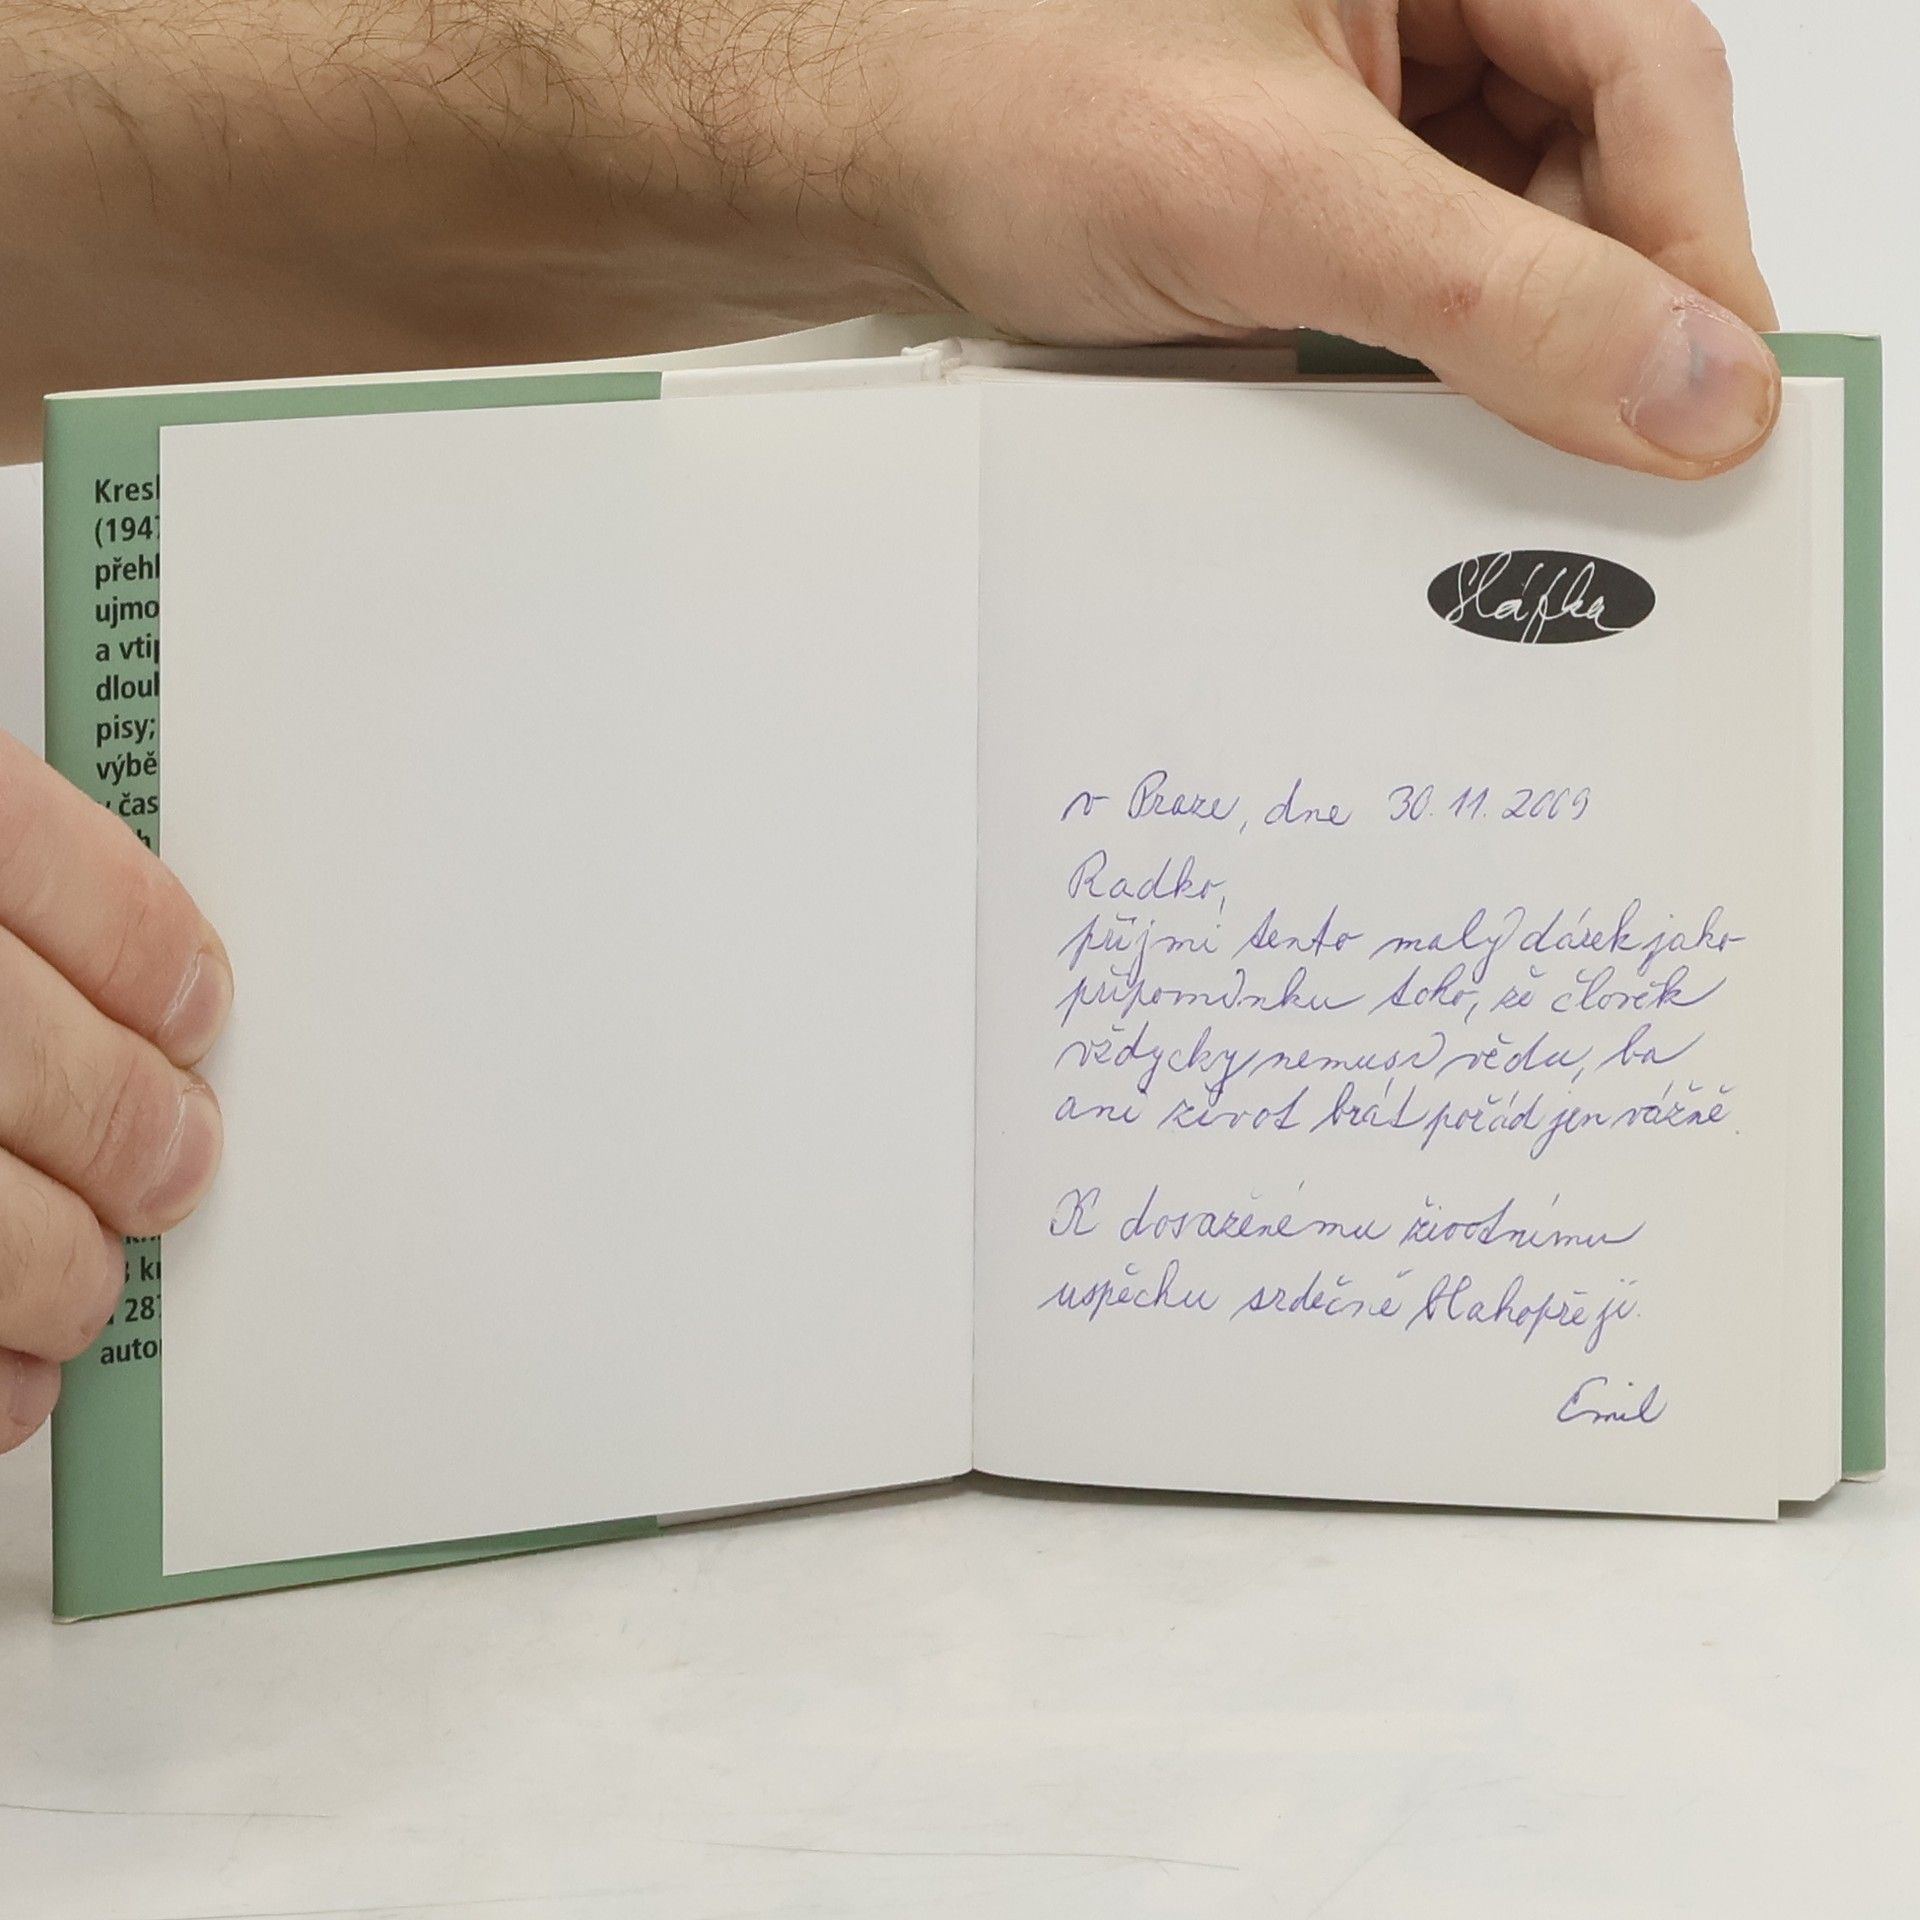 Kresl
(1947
přehl
ujmo
a vtip
dlouh
pisy;
výbě
v čas
287
autor
Sláfka
v Praze, dne 30. 11. 2009
Radko,
přijmi tento malý dárek jako
připomínku toho, že člověk
vždycky nemusí vědu, ba
ani život brát pořád jen vážně.
K dosaženému životnímu
úspěchu srdečně blahopřeji.
Emil